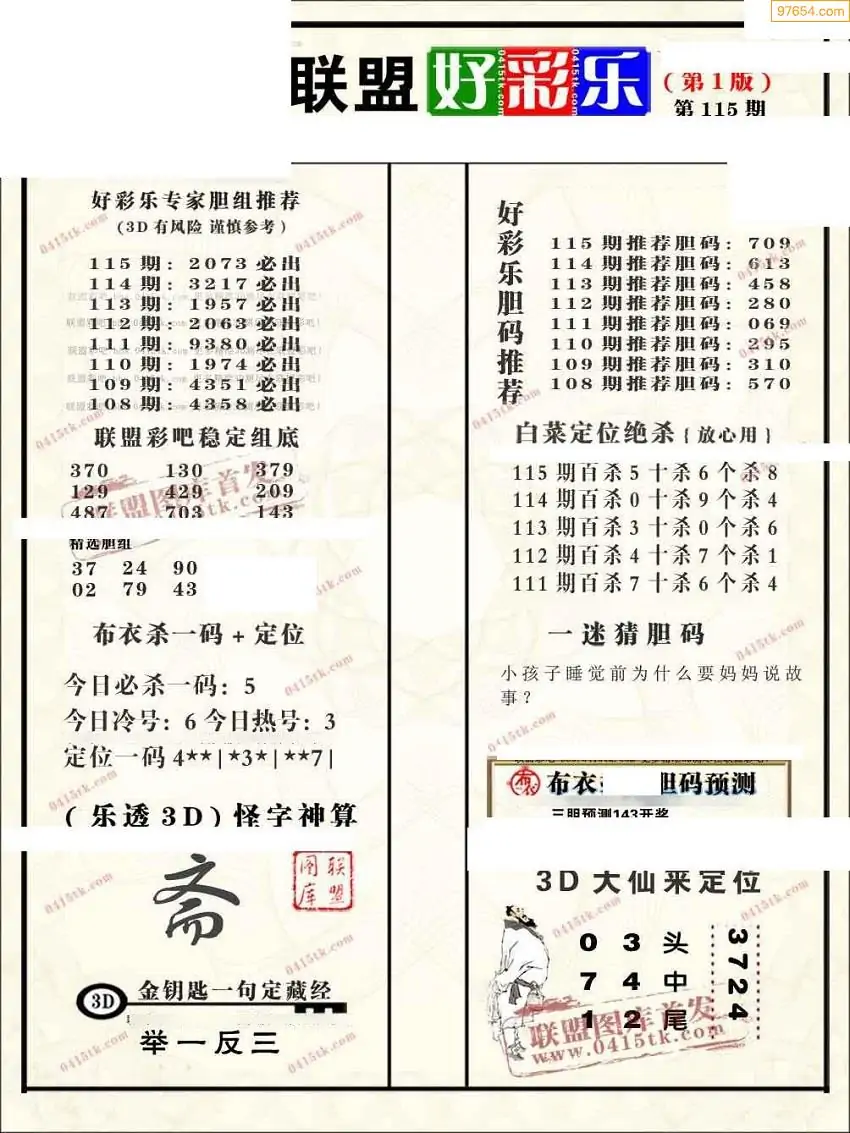 97654.com
联盟好彩乐
(第1版)
第 115 期
好彩乐专家胆组推荐
(3D 有风险 谨慎参考)
115 期: 2073 必出
114 期: 3217 必出
113 期: 1957 必出
112 期: 2063 必出
111 期: 9380 必出
110 期: 1974 必出
109 期: 4351 必出
108 期: 4358 必出
联盟彩吧稳定组底
370 130 379
129 429 209
487 703 143
精选胆组
37 24 90
02 79 43
布衣杀一码 + 定位
今日必杀一码: 5
今日冷号: 6 今日热号: 3
定位一码 4**|*3*|**7|
(乐透 3D) 怪字神算
斋
联盟图库
3D 金钥匙一句定藏经
举一反三
好彩乐胆码推荐
115 期推荐胆码: 709
114 期推荐胆码: 613
113 期推荐胆码: 458
112 期推荐胆码: 280
111 期推荐胆码: 069
110 期推荐胆码: 295
109 期推荐胆码: 310
108 期推荐胆码: 570
白菜定位绝杀{放心用}
115 期百杀 5 十杀 6 个杀 8
114 期百杀 0 十杀 9 个杀 4
113 期百杀 3 十杀 0 个杀 6
112 期百杀 4 十杀 7 个杀 1
111 期百杀 7 十杀 6 个杀 4
一迷猜胆码
小孩子睡觉前为什么要妈妈说故
事?
布衣 胆码预测
三胆预测143开奖
3D 大仙来定位
0 3 头
7 4 中
1 2 尾
3724
联盟图库首发
www.0415tk.com